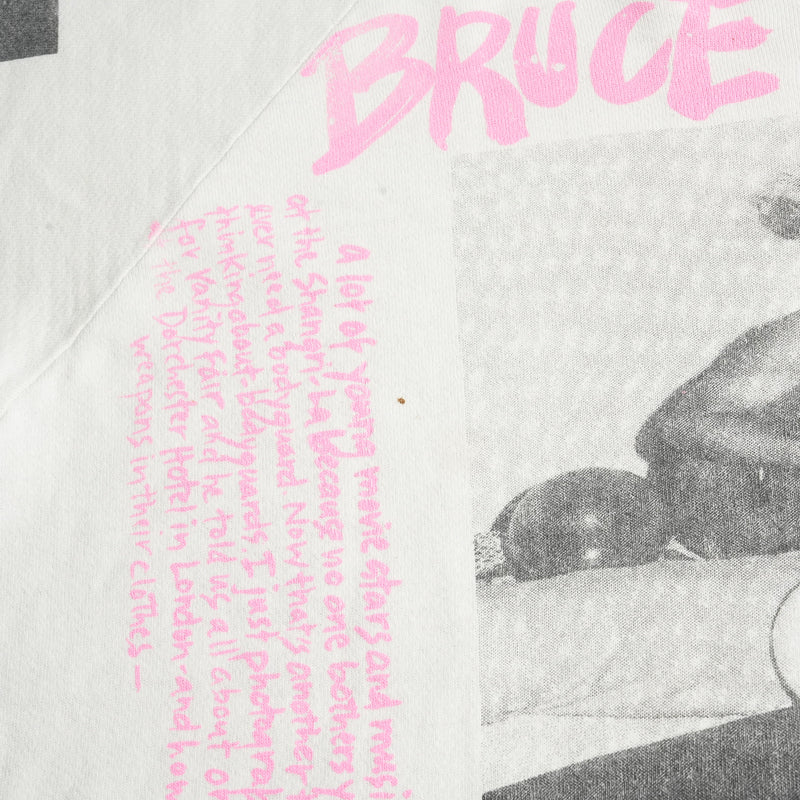 BRUCE
a lot of young movie stars and musi
at the Shangri-La because no one bothers y
ever need a bodyguard Now that's another
thinking about - bodyguards. I just photograp
for Vanity Fair and he told us all about
the Dorchester Hotel in London - and how
weapons in their clothes —